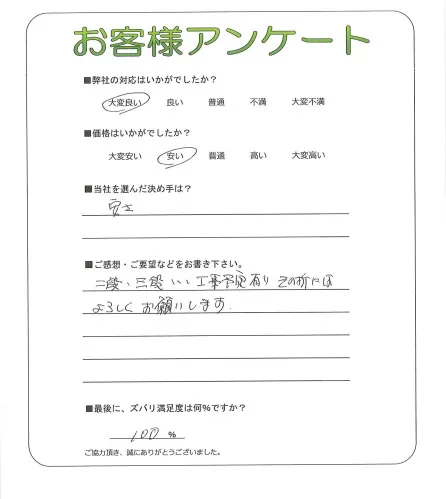 お客様アンケート
■弊社の対応はいかがでしたか？
大変良い 良い 普通 不満 大変不満
■価格はいかがでしたか？
大変安い 安い 普通 高い 大変高い
■当社を選んだ決め手は？
安さ
■ご感想・ご要望などをお書き下さい。
二段、三段 工事予定有り その折には
よろしくお願いします.
■最後に、ズバリ満足度は何％ですか？
100 ％
ご協力頂き、誠にありがとうございました。